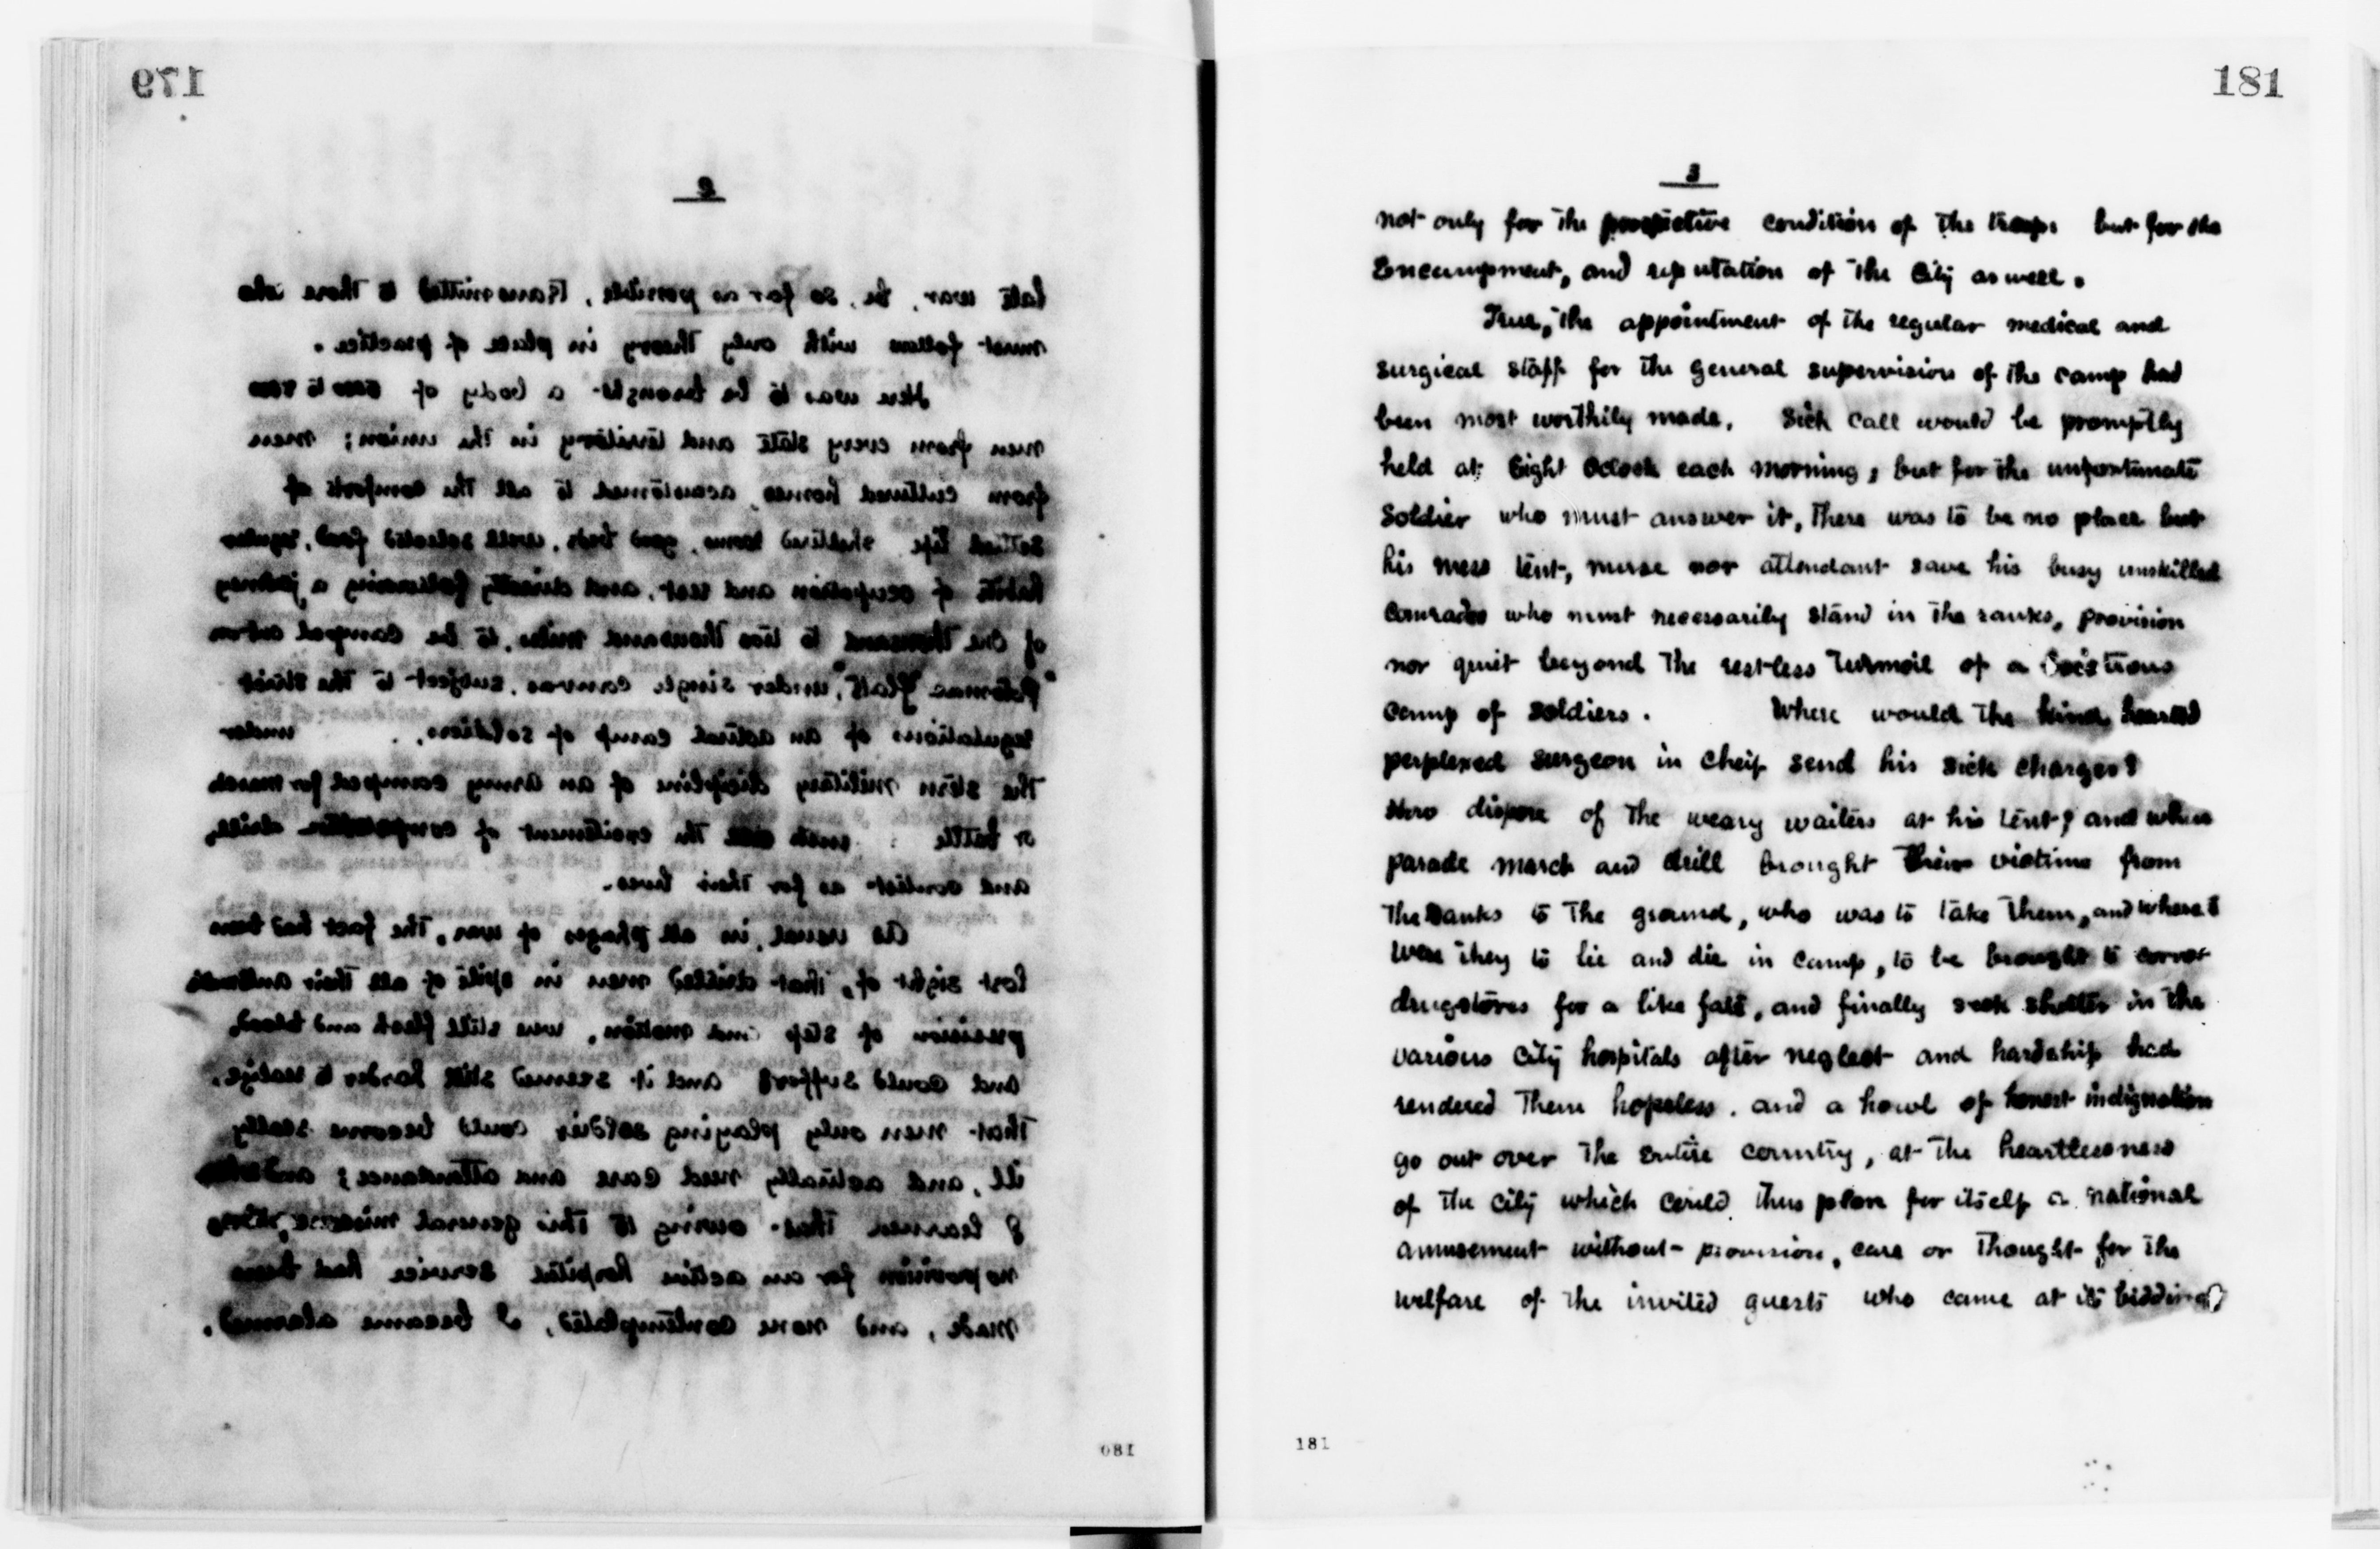 179
2
late war, be, so far as possible, transmitted to those who
must follow with only theory in place of practice.
Here was to be brought a body of
men from every state and territory in the union; men
from cultured homes, accustomed to all the comforts of
settled life sheltered homes, good beds, well selected food, regular
habits of occupation and rest, and directly following a journey
of one thousand to two thousand miles, to be camped out on
"Potomac Flats", under single canvas, subject to the strict
regulations of an actual camp of soldiers, under
the stern military discipline of an army camped for march
or battle : the excitement of drill,
and contest as for their lives.
As usual, in all phages of war, the fact had been
lost sight of, that drilled men in spite of all their
precision of step and motion, were still flesh and blood,
and could suffer; and it seemed still harder to realize,
that men only playing soldier could become really
ill, and actually need care and attendance; and when
I learned that owing to this general
no provision for an active hospital service had been
made, and none contemplated, I became alarmed,
180
181
3
not only for the condition of the troops but for the
Encampment, and reputation of the City as well.
True, the appointment of the regular medical and
surgical staff for the general supervision of the camp had
been most worthily made. Sick call would be promptly
held at Eight Oclock each morning; but for the unfortunate
Soldier who must answer it, there was to be no place but
his mess tent, nurse nor attendant save his busy unskilled
Comrades who must necessarily stand in the ranks, provision
nor quiet beyond the restless turmoil of a
camp of soldiers. Where would the kind hearted
perplexed surgeon in Cheif send his sick charges?
How dispose of the weary waiters at his tent? and when
parade march and drill brought their victims from
the ranks to the ground, who was to take them, and where?
Were they to lie and die in camp, to be brought to corner
drugstores for a like fate, and finally seek shelter in the
various City hospitals after neglect and hardship had
rendered them hopeless. and a howl of honest indignation
go out over the entire country, at the heartlessness
of the city which could thus plan for itself a national
amusement without provision, care or thought for the
welfare of the invited guests who came at its bidding?
181